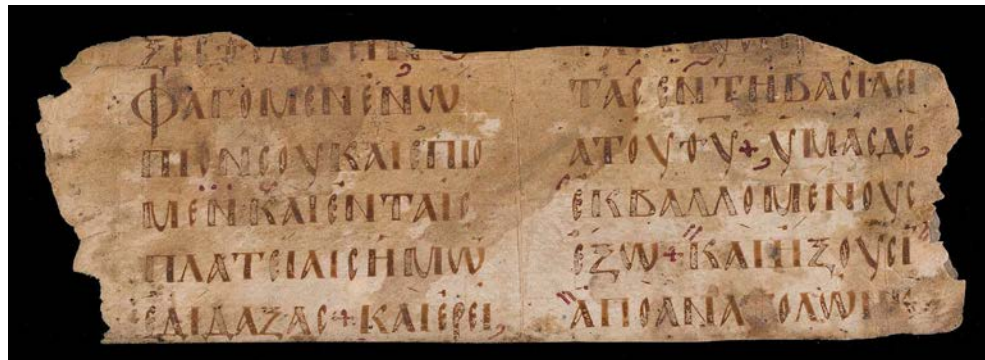 ΦΑΓΟΜΕΝΕΝΩ
ΠΙΟΝCΟΥΚΑΙΕΠΙΟ
ΜΕΝ·ΚΑΙΕΝΤΑΙC
ΠΛΑΤΕΙΑΙCΗΜΩ
ΕΔΙΔΑΞΑC+ΚΑΙΕΡΕΙ,
ΤΑCΕΝΤΗΒΑCΙΛΕΙ
ΑΤΟΥΘΥ+ΥΜΑCΔΕ
ΕΚΒΑΛΛΟΜΕΝΟΥC
ΕΞΩ+ΚΑΙΗΞΟΥCΙ
ΑΠΟΑΝΑ ΟΛΩΝ